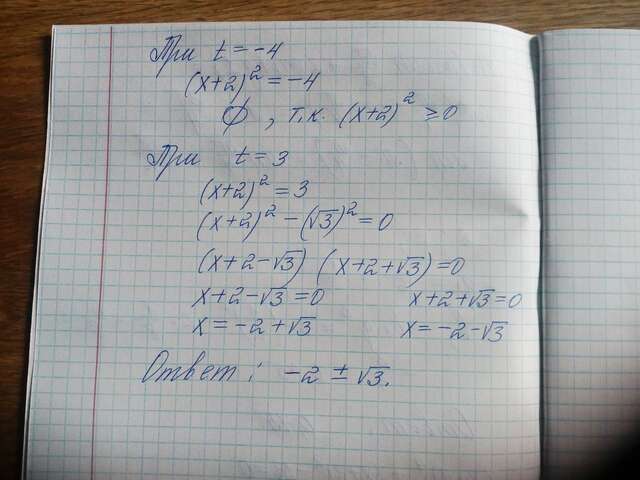 При t = -4
(x+2)² = -4
∅, т.к. (x+2)² ≥ 0
При t = 3
(x+2)² = 3
(x+2)² - (√3)² = 0
(x+2-√3) (x+2+√3) = 0
x+2-√3 = 0 x+2+√3 = 0
x = -2+√3 x = -2-√3
Ответ: -2 ± √3.